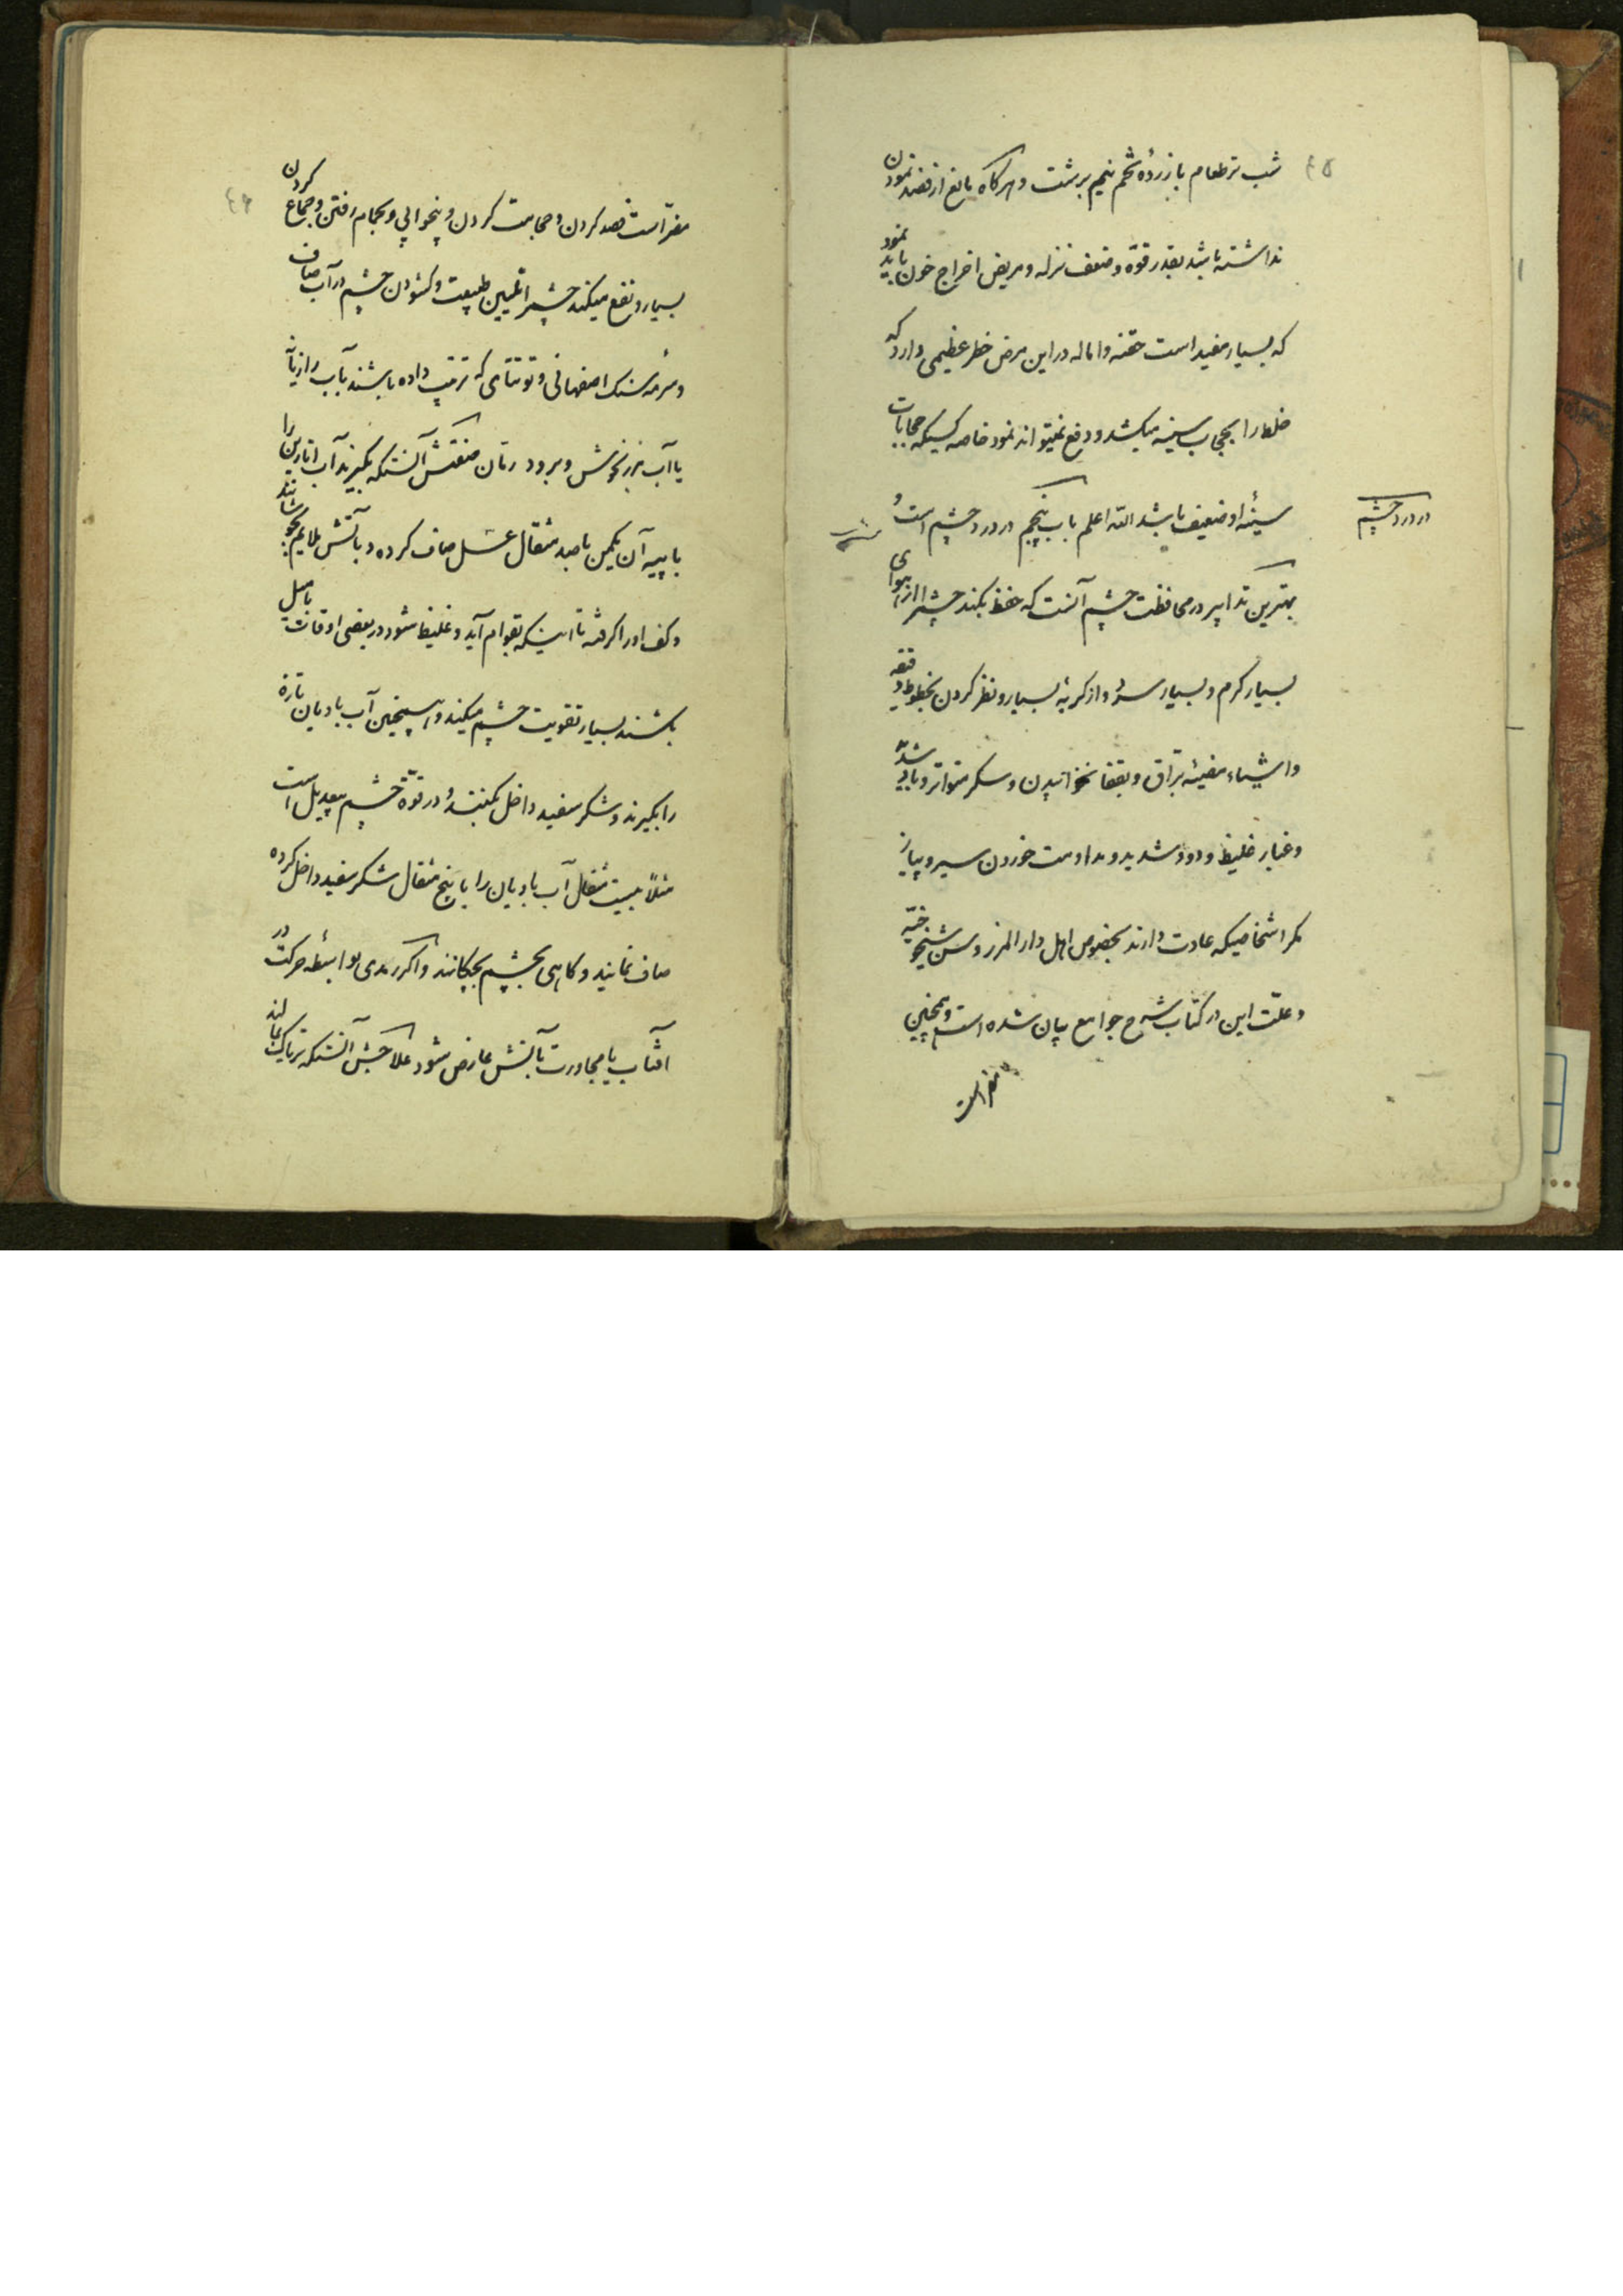 ٤٥
شب تر طعام با زردهٔ تخم نیم برشت و هرگاه مانع از فصد نمودن
نداشته باشد بقدر قوّه و ضعف نزله و مریض اخراج خون باید نمود
که بسیار مفید است حقنه و اماله در این مرض خطر عظیمی دارد که
خلط را بحجاب سینه میکشد و دفع نمیتواند نمود خاصه کسیکه حجابات
سینهٔ او ضعیف باشد الله اعلم باب پنجم در درد چشم است
در درد چشم
بهترین تدابیر در محافظت چشم آنست که حفظ بکند چشم را از هوای
بسیار کرم و بسیار سرد و از کریهٔ بسیار و نظر کردن بخطوط دقیقه
و اشیاء مضیئه براق و بقفا نخوابیدن و سکر متواتر و باد شدید
و غبار غلیظ و دود شدید و مداومت خوردن سیر و پیاز
مکر اشخاصیکه عادت دارند بخصوص اهل دار المرز و سن شیخوخیّه
و علّت این در کتاب شرح جوامع بیان شده است و همچنین
مضر است
٤٦
مضر است فصد کردن و حجامت کردن و بیخوابی و بحمام رفتن و جماع کردن
بسیار و نفع میکند چشم را تلیین طبیعت و کشودن چشم در آب صاف
و سرمه سنک اصفهانی و توتیائی که ترتیب داده باشند بآب رازیانه
یا آب مرزنجوش و برود رمان صنعتش آنستکه بکیرند آب انارین را
با پیه آن یکمن با صد مثقال عسل صاف کرده و بآتش ملایم بجوشانند
و کف او را کرفته تا اینکه بقوام آید و غلیظ شود در بعضی اوقات با میل
بکشند بسیار تقویت چشم میکند و همچنین آب بادیان تازه
را بکیرند و شکر سفید داخل کنند و در قوّة چشم بیعدیل است
مثلاً بیست مثقال آب بادیان را با پنج مثقال شکر سفید داخل کرده
صاف نمایند و کاهی بچشم بچکانند و اکر رمدی بواسطه حرکت در
آفتاب یا مجاورت بآتش عارض شود علاجش آنستکه تریاک بمالند